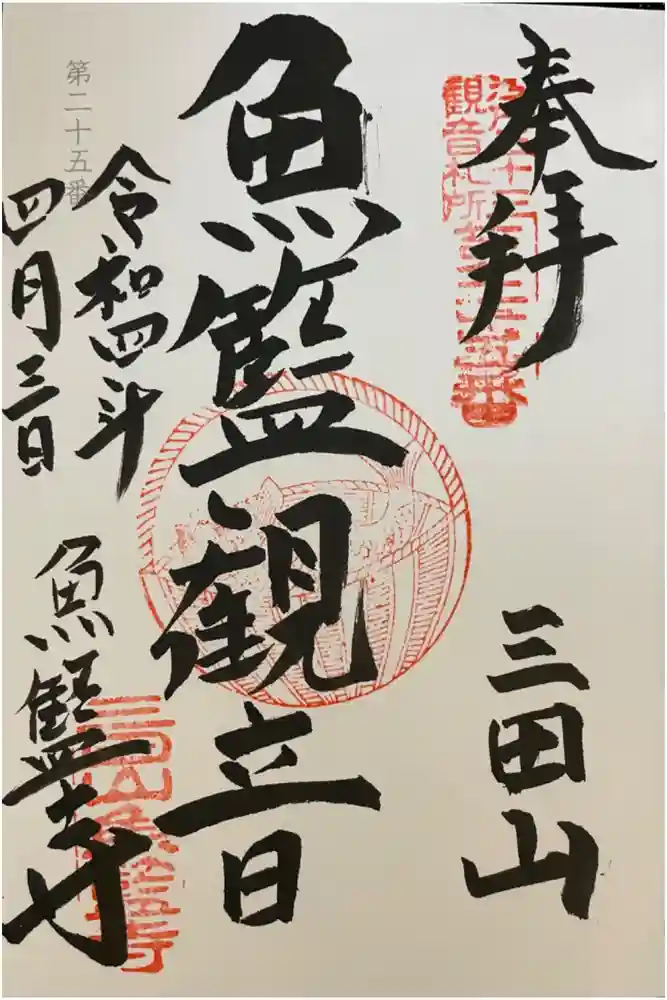 奉拝
三田山
魚籃観音
第二十五番
令和四年
四月三日
魚籃寺
観音札所第二十五番
三田山魚籃寺